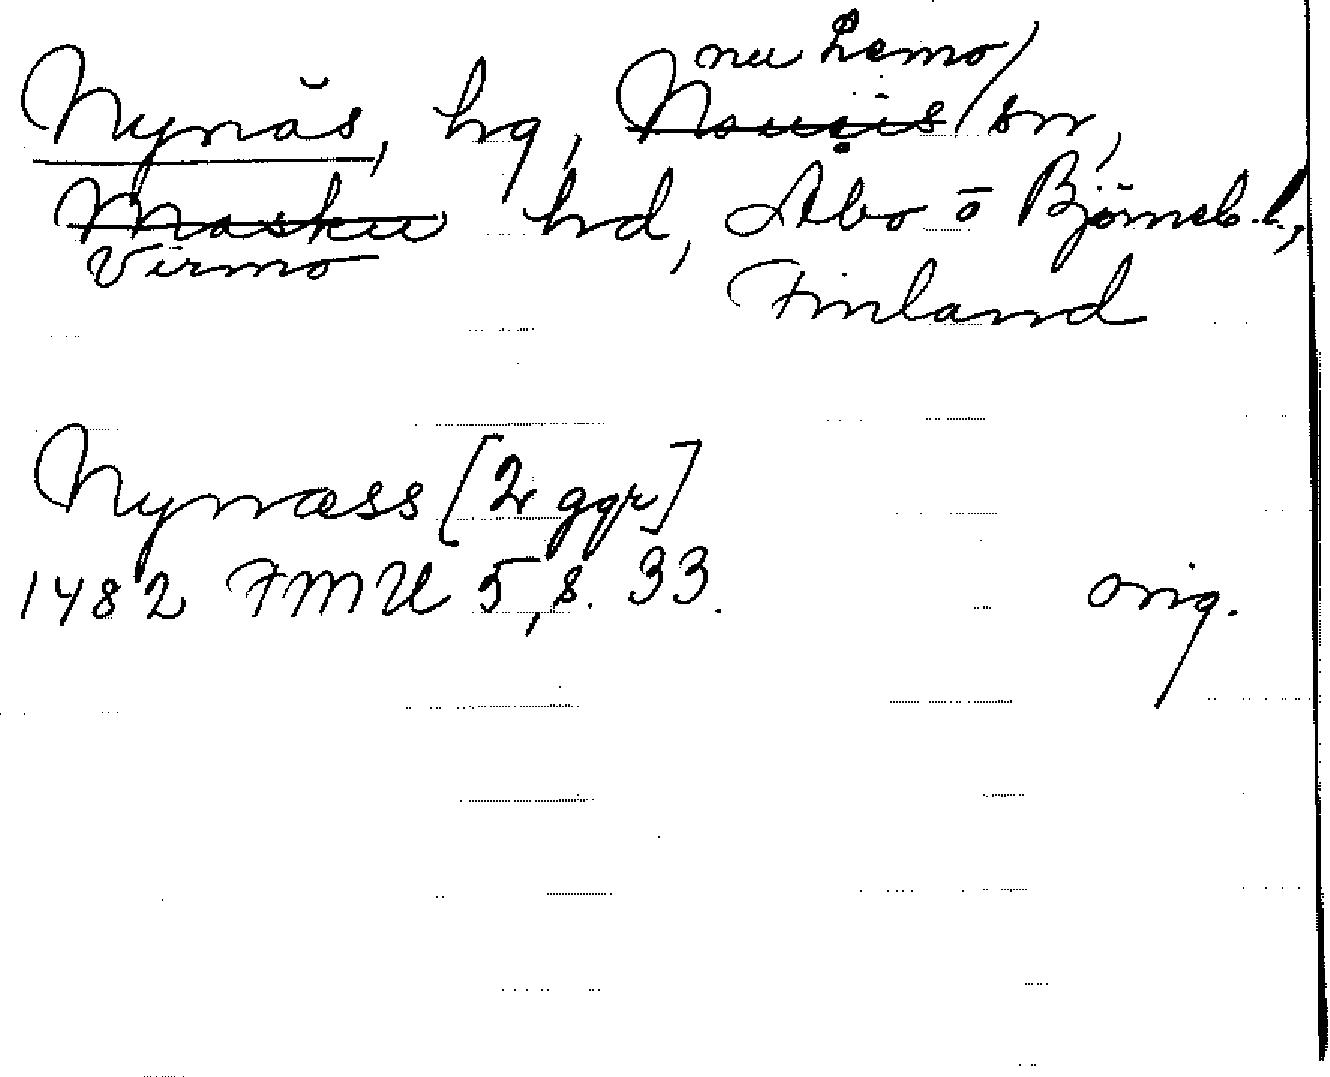 nu Lemo/
Nynäs, hg, Nousis/sn,
Masku hd, Åbo o Björneb. l.,
Virmo
Finland
Nynæss [2 ggr]
1482 FMU 5, s. 33. orig.